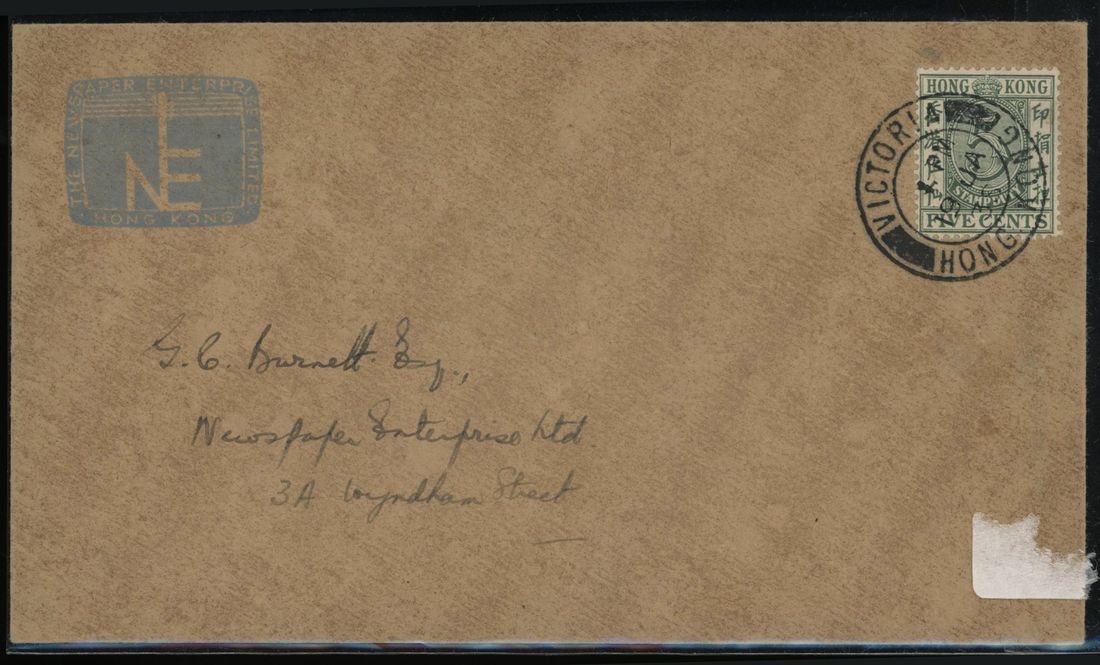 THE NEWSPAPER ENTERPRISE LIMITED
NE
HONG KONG
HONG KONG
印捐
STAMP DUTY
FIVE CENTS
VICTORIA
HONG KONG
19 JA
G. C. Burnett. Esq.,
Newspaper Enterprise Ltd.
3A Wyndham Street